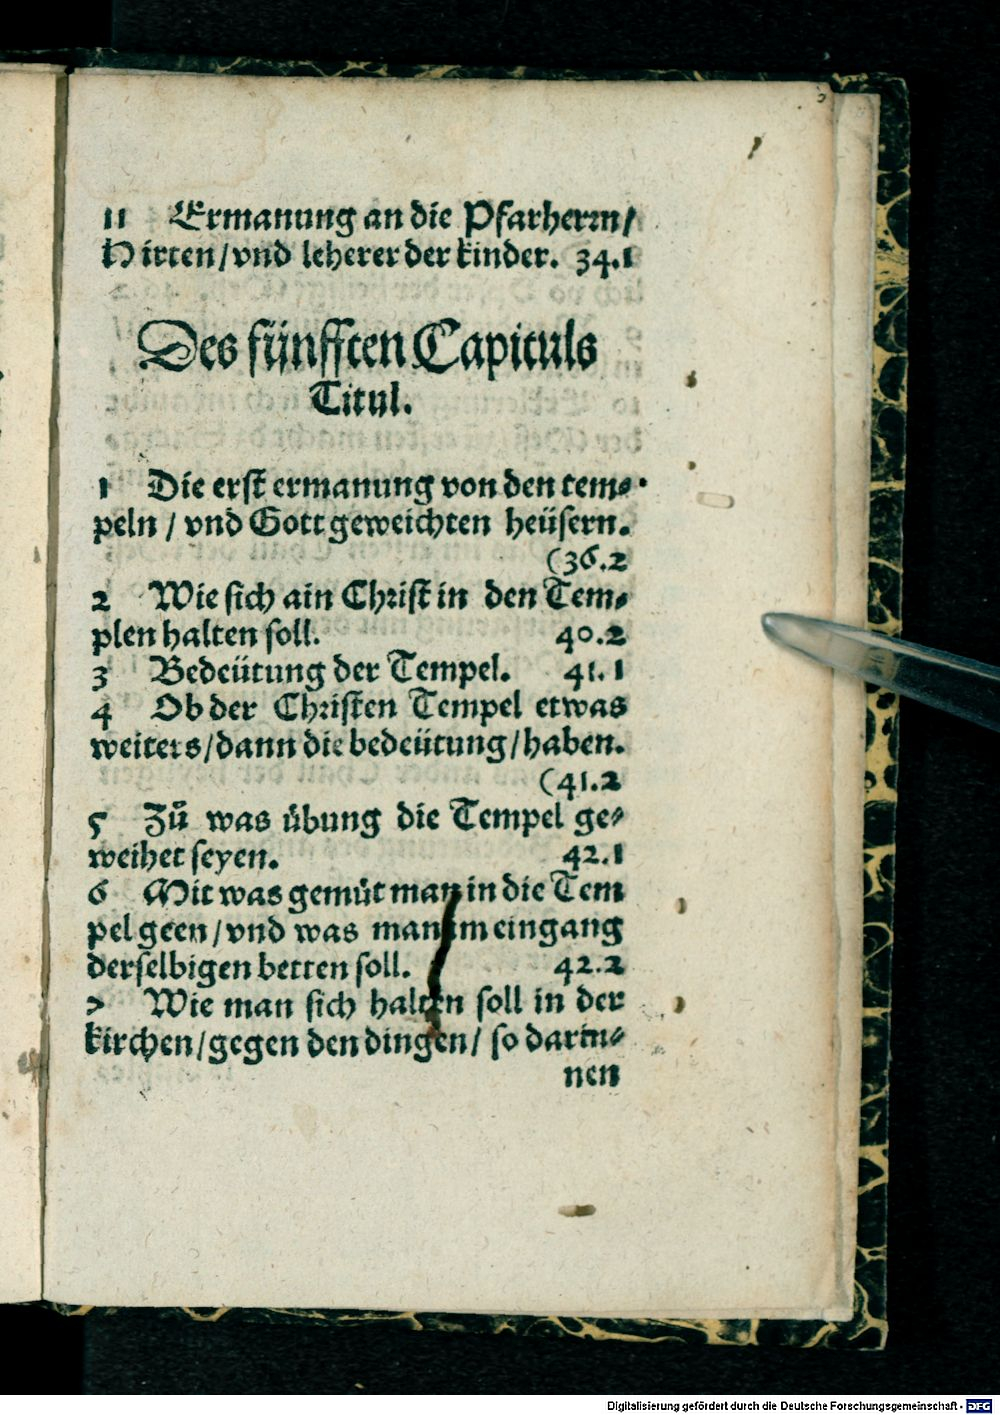 11 Ermanung an die Pfarherrn/
Hirten/vnd leherer der kinder. 34.1
Des fünfften Capituls
Titul.
1 Die erst ermanung von den tem⸗
peln / vnd Gott geweichten heüsern.
(36.2
2 Wie sich ain Christ in den Tem⸗
plen halten soll. 40.2
3 Bedeütung der Tempel. 41.1
4 Ob der Christen Tempel etwas
weiters/dann die bedeütung/haben.
(41.2
5 Zů was übung die Tempel ge⸗
weihet seyen. 42.1
6 Mit was gemüt man in die Tem
pel geen/vnd was man im eingang
derselbigen betten soll. 42.2
7 Wie man sich halten soll in der
kirchen/gegen den dingen/ so darin⸗
nen
Digitalisierung gefördert durch die Deutsche Forschungsgemeinschaft - DFG